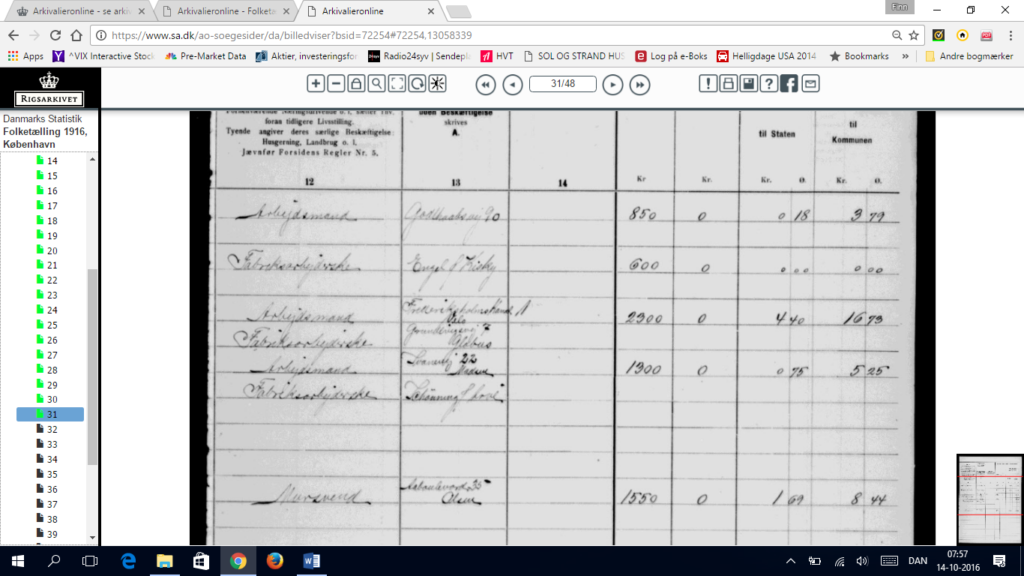 Arkivalieronline - se arki
Arkivalieronline - Folketæ
Arkivalieronline
Finn
https://www.sa.dk/ao-soegesider/da/billedviser?bsid=72254#72254,13058339
Apps
^VIX Interactive Stock
Pre-Market Data
Aktier, investeringsfor
Radio24syv | Sendepl
HVT
SOL OG STRAND HUS
Log på e-Boks
Helligdage USA 2014
Bookmarks
»
Andre bogmærker
RIGSARKIVET
31/48
Danmarks Statistik
Folketælling 1916,
København
14
15
16
17
18
19
20
21
22
23
24
25
26
27
28
29
30
31
32
33
34
35
36
37
38
39
foran tidligere Livsstilling.
Tyende angiver deres særlige Beskæftigelse:
Husgerning, Landbrug o. l.
Jævnfør Forsidens Regler Nr. 5.
uden Beskæftigelse
skrives
A.
til Staten
til
Kommunen
12 13 14 Kr Kr. Kr. Ø. Kr. Ø.
Arbejdsmand 90 850 0 0 18 3 79
Fabriksarbejderske Engel 600 0 0 00 0 00
Arbejdsmand 2300 0 4 40 16 73
Fabriksarbejderske
Arbejdsmand 22 1300 0 0 75 5 25
Fabriksarbejderske
Mursvend Olsen 1550 0 1 69 8 44
DAN
07:57
14-10-2016